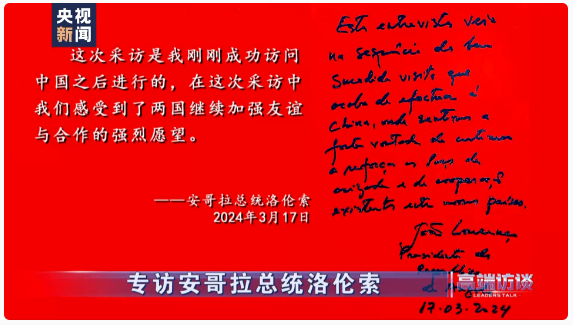 央视
新闻
这次采访是我刚刚成功访问
中国之后进行的，在这次采访中
我们感受到了两国继续加强友谊
与合作的强烈愿望。
——安哥拉总统洛伦索
2024年3月17日
Esta entrevista vem
na sequência da bem
sucedida visita que
acabo de efectuar à
China, onde sentimos a
forte vontade de continuar
a reforçar os laços de
amizade e de cooperação
existentes entre nossos países.
João Lourenço
Presidente da
República
de Angola
17.03.2024
专访安哥拉总统洛伦索
高端访谈
LEADERS TALK